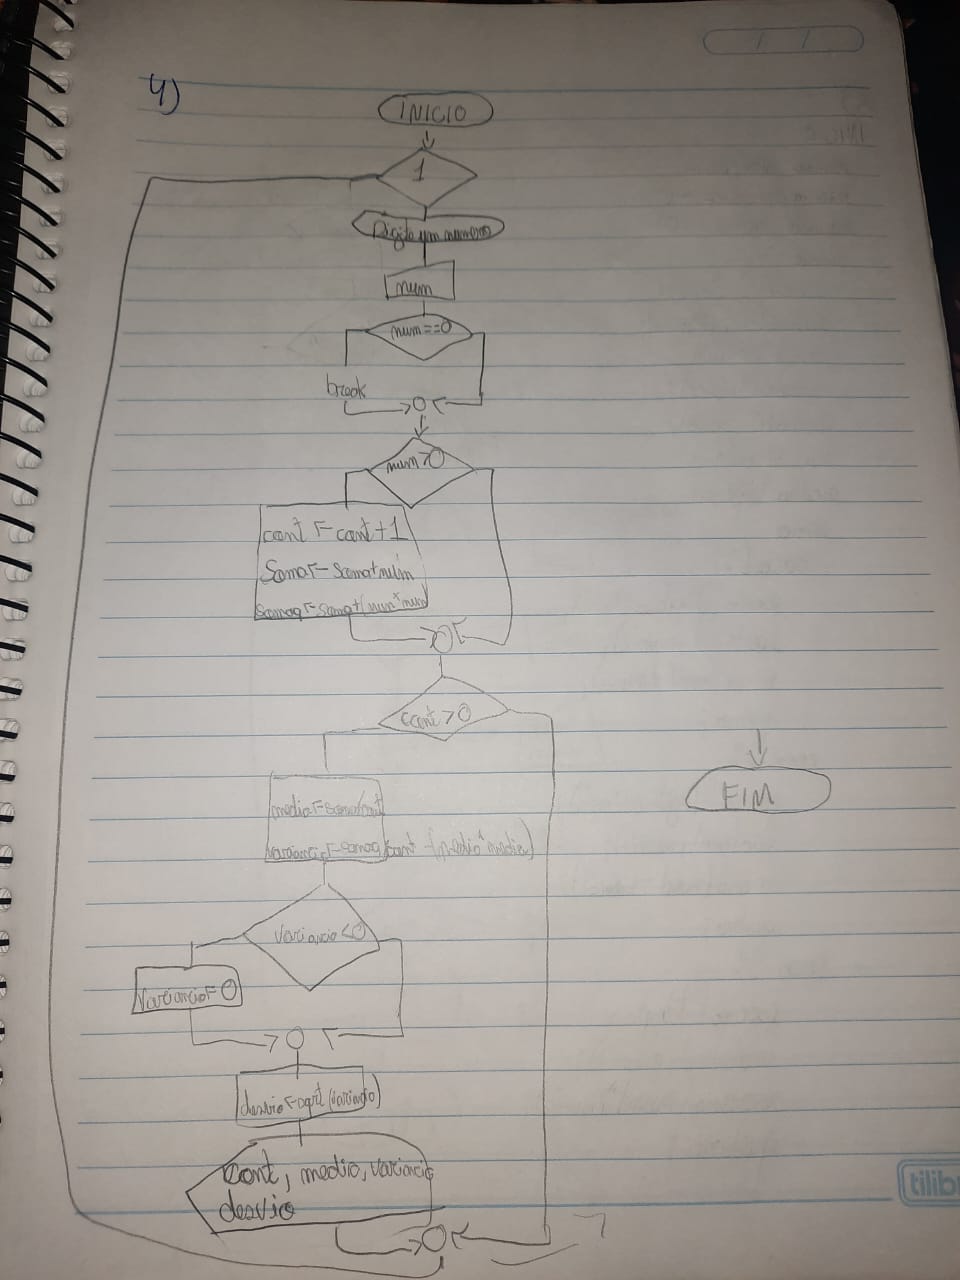 4)
INICIO
1
Digite um numero
num
num==0
break
num>0
cont ← cont+1
Soma ← soma+num
somaq ← soma+(num*num
cont>0
media ← soma/cont
variancia ← somaq/cont -(media*media)
FIM
variancia<0
Variancia ← 0
desvio ← sqrt(variancia)
Cont, media, variancia
desvio
tilib